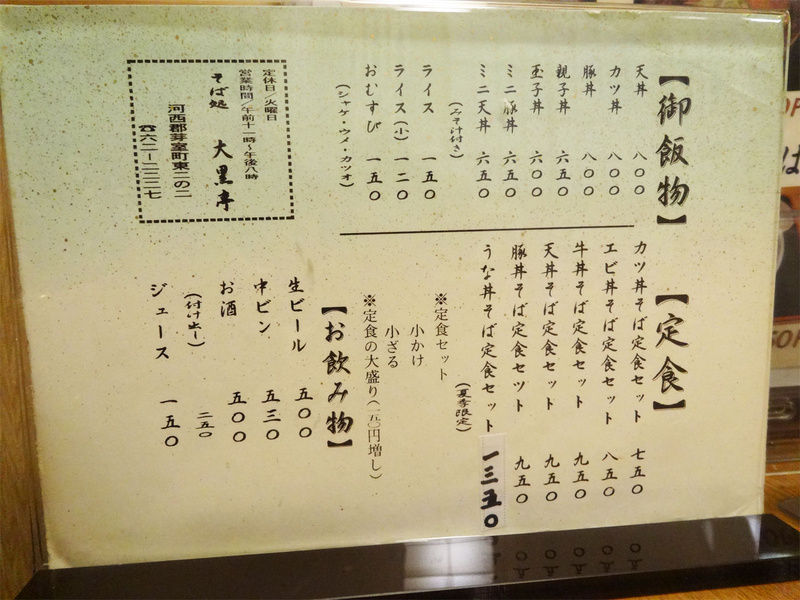 【御飯物】
天丼 八〇〇
カツ丼 八〇〇
豚丼 八〇〇
親子丼 六五〇
玉子丼 六〇〇
ミニ豚丼 六五〇
ミニ天丼 六五〇
（みそ汁付き）
ライス 一五〇
ライス（小） 一二〇
おむすび 一五〇
（シャケ・ウメ・カツオ）
定休日／火曜日
営業時間／午前十一時～午後八時
そば処 大黒亭
河西郡芽室町東二の二
☎六二－二二二七
【定食】
カツ丼そば定食セット 七五〇
エビ丼そば定食セット 八五〇
牛丼そば定食セット 九五〇
天丼そば定食セット 九五〇
豚丼そば定食セット 九五〇
うな丼そば定食セット 一三五〇
（夏季限定）
※定食セット
小かけ
小ざる
※定食の大盛り（一五〇円増し）
【お飲み物】
生ビール 五〇〇
中ビン 五三〇
お酒 五〇〇
（付け出し） 二五〇
ジュース 一五〇